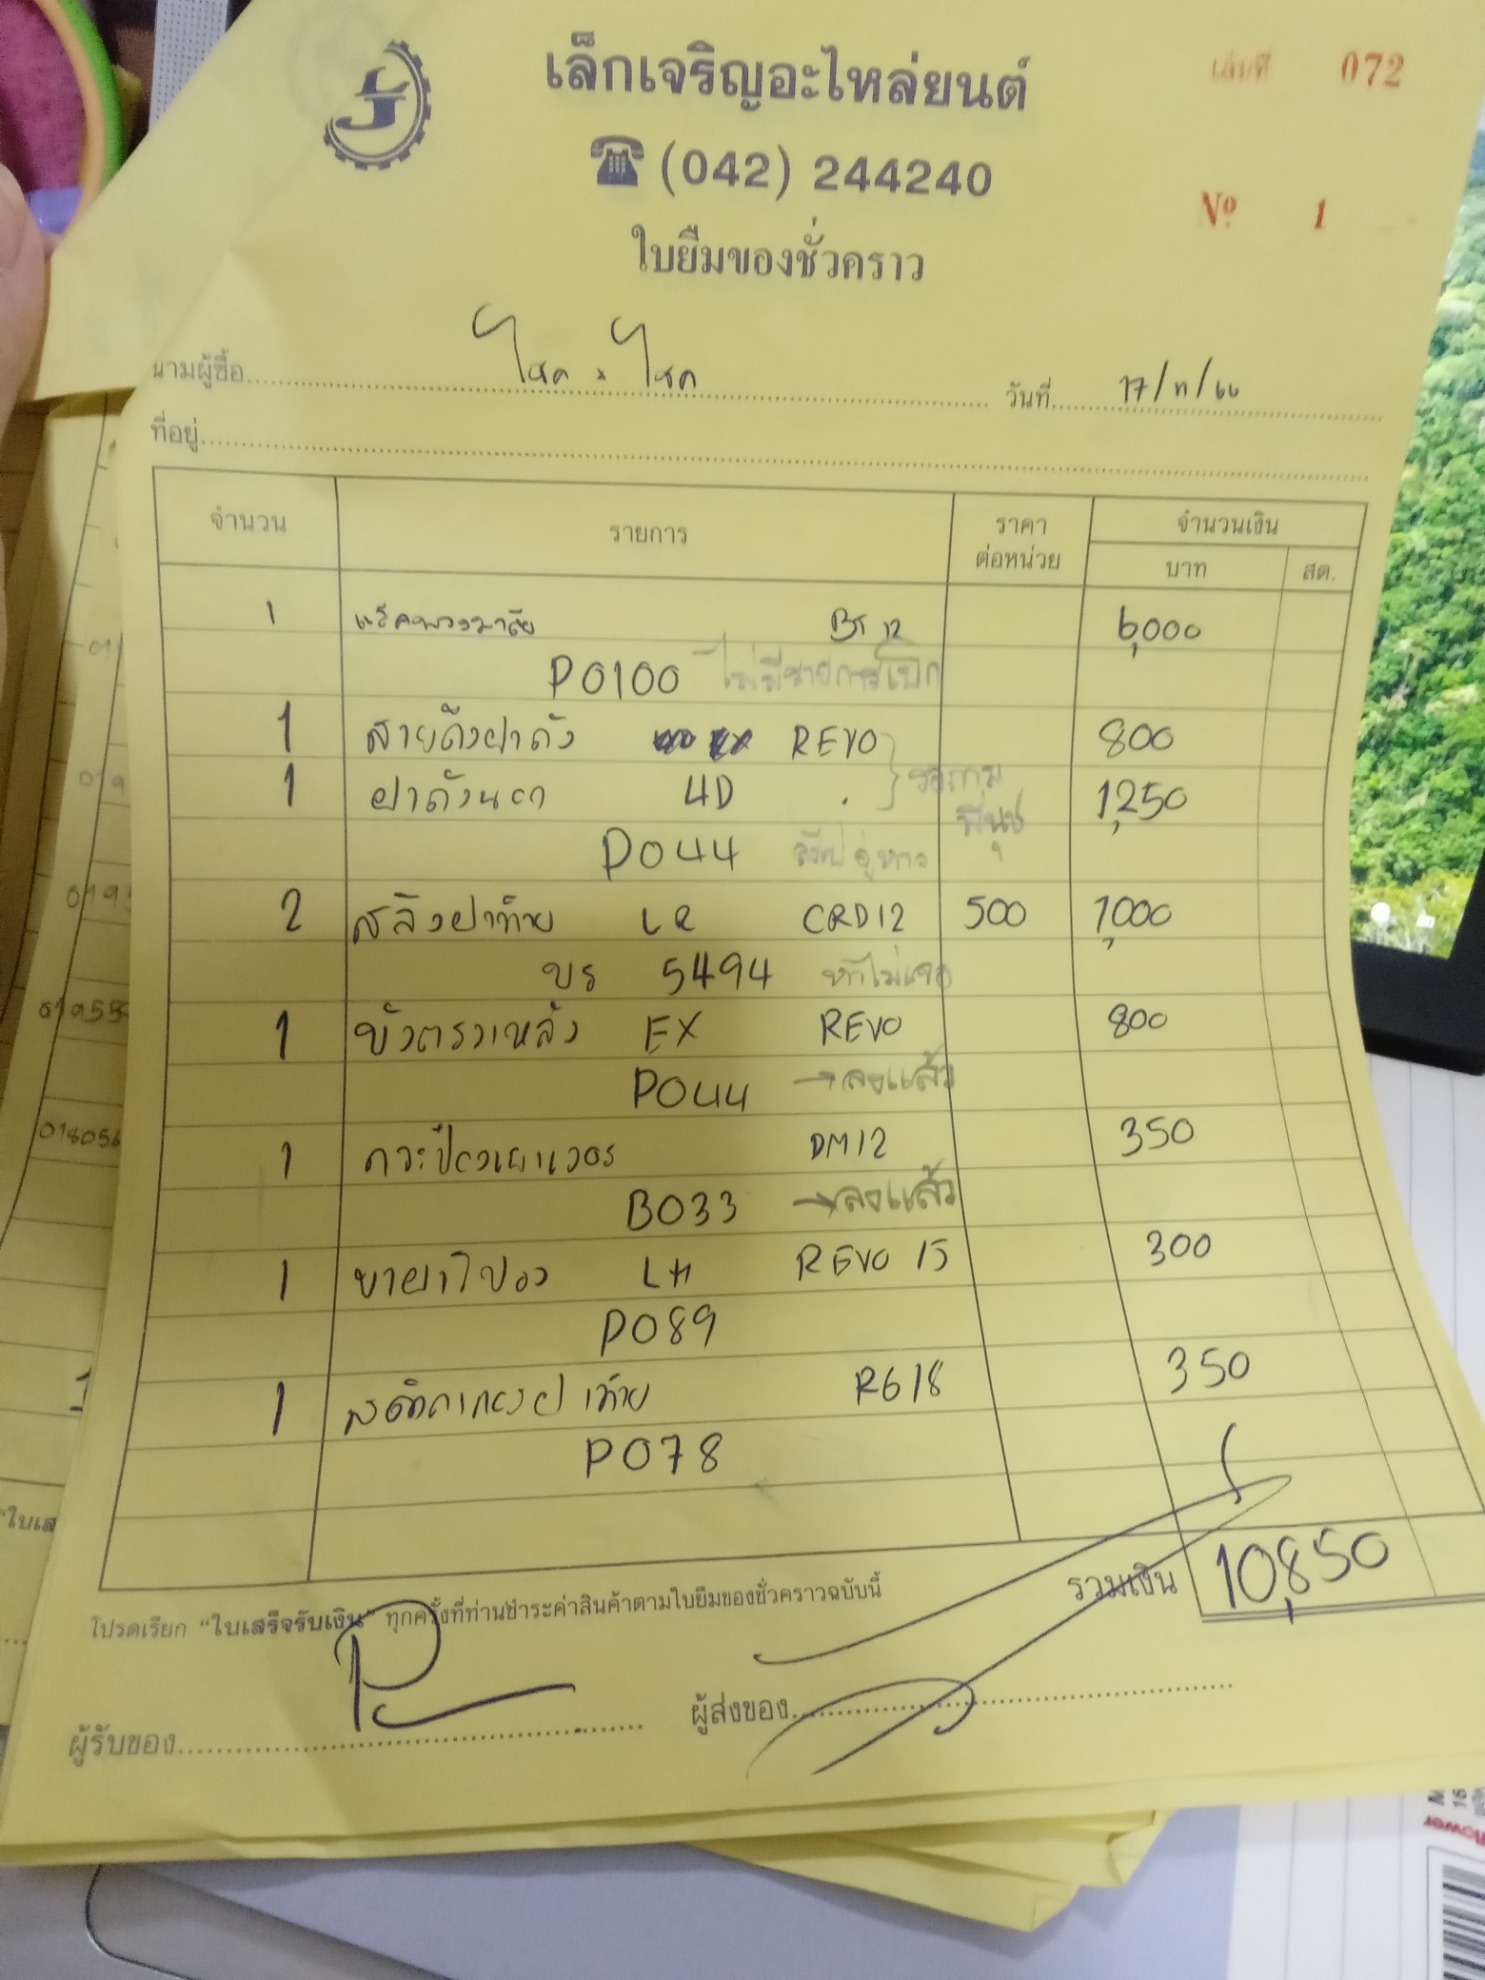 เล็กเจริญอะไหล่ยนต์
เล่มที่ 072
(042) 244240
Nº 1
ใบยืมของชั่วคราว
นามผู้ซื้อ โชค x โชค วันที่ 17/11/66
ที่อยู่
จำนวน รายการ ราคาต่อหน่วย จำนวนเงิน
บาท สต.
1 แร็คพวงมาลัย BT 12 6,000
P0100 ไม่มีรายการเบิก
1 สายดึงฝาถัง REVO 800
1 ฝาถังนอก 4D 1,250
P044
2 สลิงฝาท้าย LR CRD12 500 1,000
บร 5494 หาไม่เจอ
1 บังตรงหลัง EX REVO 800
P044 → ลงแล้ว
1 DM12 350
B033 → ลงแล้ว
1 ขายาไปอง LH REVO 15 300
P089
1 RG18 350
P078
รวมเงิน 10,850
โปรดเรียก “ใบเสร็จรับเงิน” ทุกครั้งที่ท่านชำระค่าสินค้าตามใบยืมของชั่วคราวฉบับนี้
ผู้รับของ ผู้ส่งของ